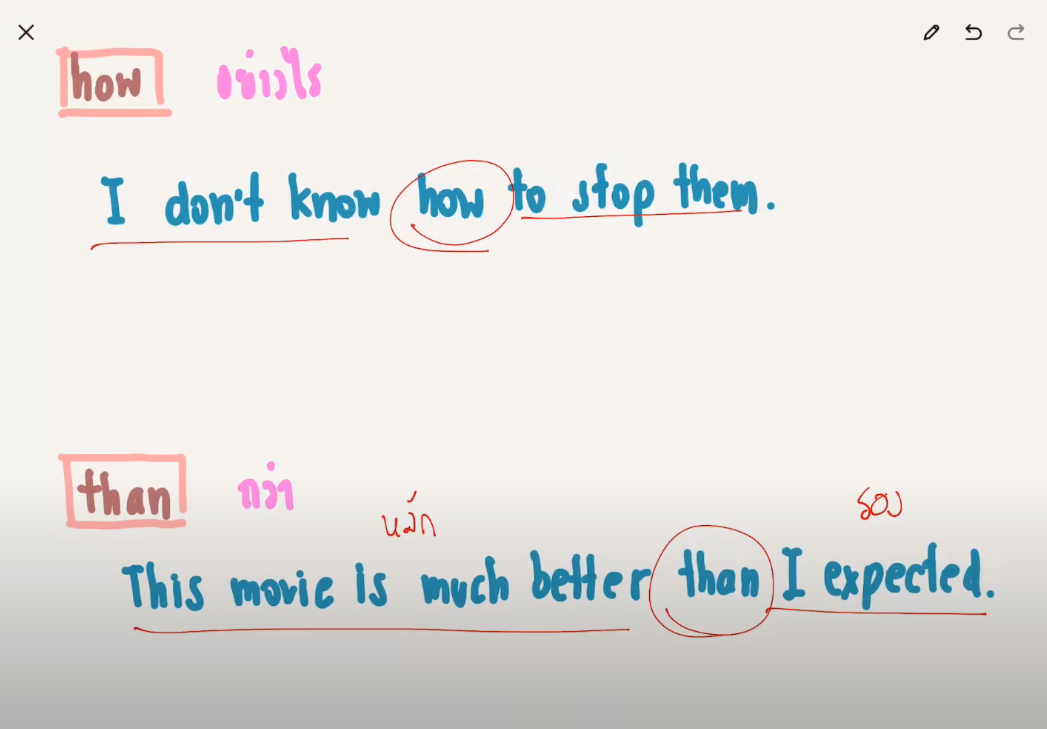 how อย่างไร
I don't know how to stop them.
than กว่า
หลัก รอง
This movie is much better than I expected.